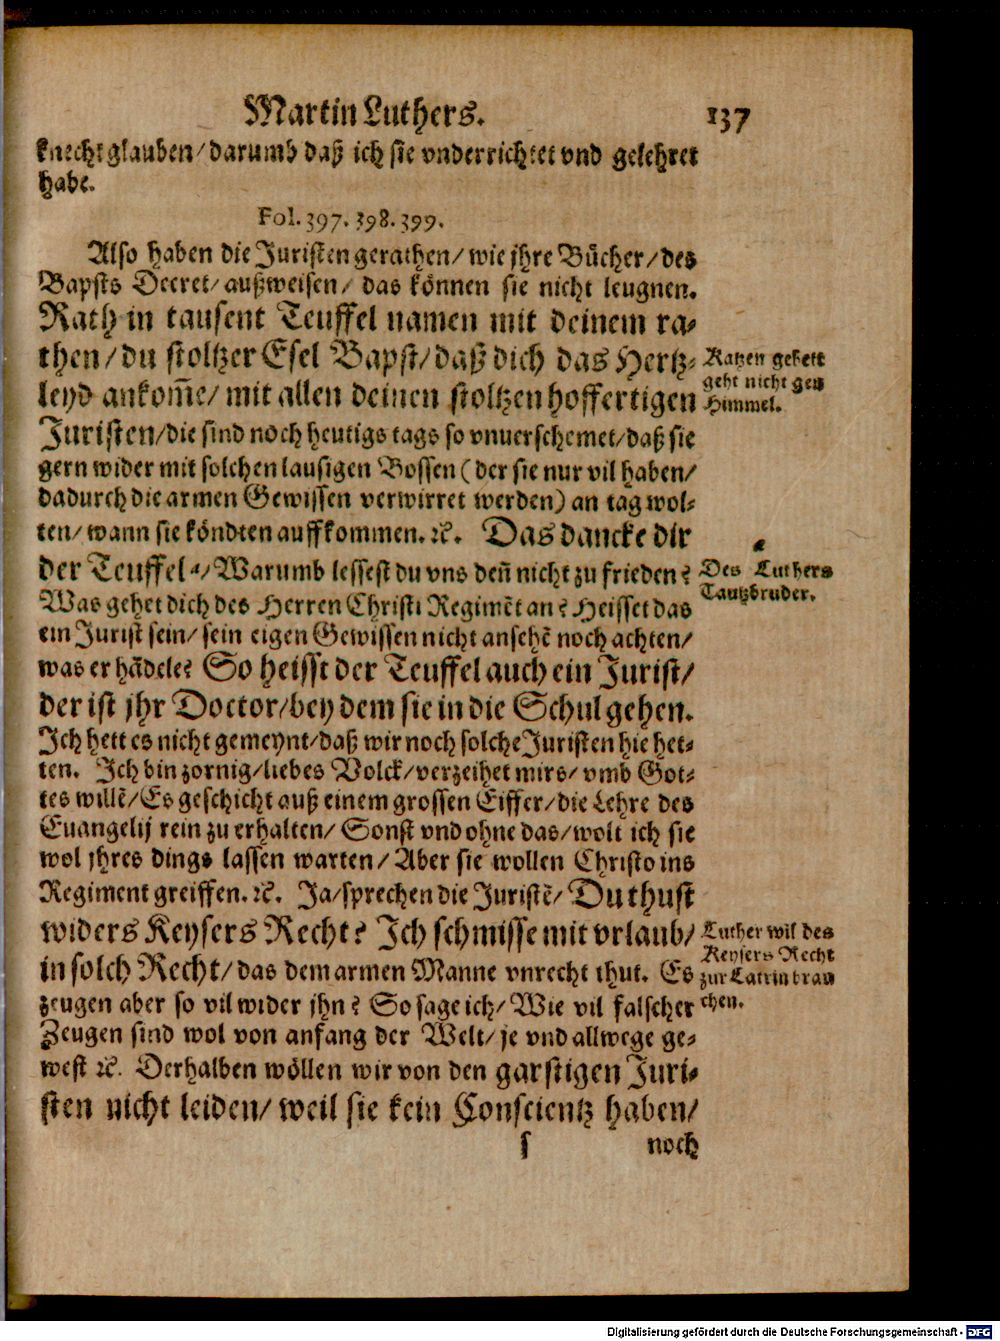 Martin Luthers. 137
knecht glauben/ darumb daß ich sie vnderrichtet vnd gelehret
habe.
Fol. 397. 398. 399.
Also haben die Juristen gerathen/ wie jhre Bücher/ des
Bapsts Decret/ außweisen/ das können sie nicht leugnen.
Rath in tausent Teuffel namen mit deinem ra-
then/ du stoltzer Esel Bapst/ daß dich das Hertz-
leyd ankom̄e/ mit allen deinen stoltzen hoffertigen
Juristen/ die sind noch heutigs tags so vnuerschemet/ daß sie
gern wider mit solchen lausigen Bossen (der sie nur vil haben/
dadurch die armen Gewissen verwirret werden) an tag wol-
ten/ wann sie köndten auffkommen. ꝛc. Das dancke dir
der Teuffel a/ Warumb lessest du vns den̄ nicht zu frieden?
Was gehet dich des Herren Christi Regimēt an? Heisset das
ein Jurist sein/ sein eigen Gewissen nicht ansehē noch achten/
was er hādele? So heisst der Teuffel auch ein Jurist/
der ist jhr Doctor/ bey dem sie in die Schul gehen.
Ich hett es nicht gemeynt/ daß wir noch solche Juristen hie het-
ten. Ich bin zornig/ liebes Volck/ verzeihet mirs/ vmb Got-
tes willē/ Es geschicht auß einem grossen Eiffer/ die Lehre des
Euangelij rein zu erhalten/ Sonst vnd ohne das/ wolt ich sie
wol jhres dings lassen warten/ Aber sie wollen Christo ins
Regiment greiffen. ꝛc. Ja/ sprechen die Juristē/ Du thust
widers Keysers Recht? Ich schmisse mit vrlaub/
in solch Recht/ das dem armen Manne vnrecht thut. Es
zeugen aber so vil wider jhn? So sage ich/ Wie vil falscher
Zeugen sind wol von anfang der Welt/ je vnd allwege ge-
west ꝛc. Derhalben wöllen wir von den garstigen Juri-
sten nicht leiden/ weil sie kein Conscientz haben/
s noch
Katzen gebett
geht nicht gen
Himmel.
a
Des Luthers
Tautzbruder.
Luther wil des
Keysers Recht
zur Latrin brau
chen.
Digitalisierung gefördert durch die Deutsche Forschungsgemeinschaft - DFG